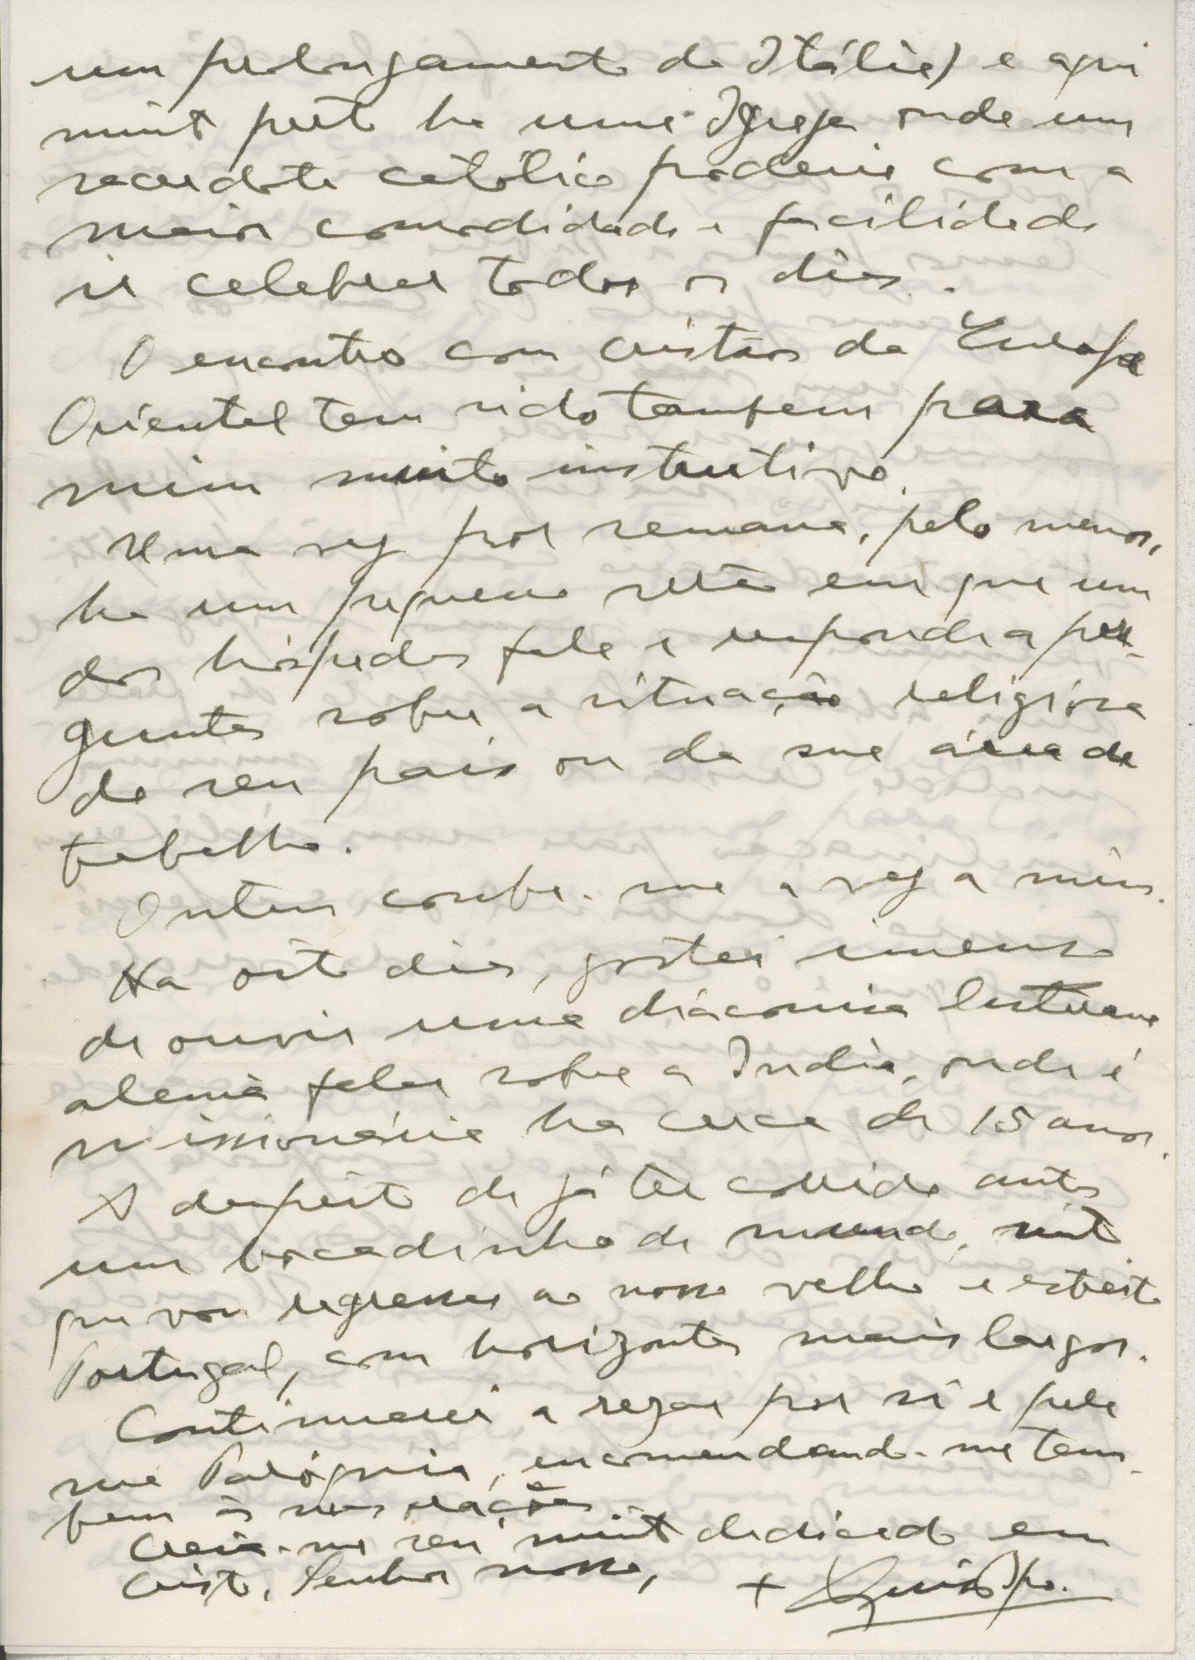 um prolongamento da Itália) e aqui
muito perto ha uma Igreja onde um
sacerdote católico poderia com a
maior comodidade e facilidade
ir celebrar todos os dias.
O encontro com cristãos da Europa
Oriental tem sido tambem para
mim muito instrutivo.
Uma vez por semana, pelo menos,
ha um pequeno serão em que um
dos hóspedes fala e responde a per-
guntas sobre a situação religiosa
do seu país ou da sua área de
trabalho.
Ontem coube-me a vez a mim.
Ha oito dias, gostei imenso
de ouvir uma diáconisa luterana
alemã falar sobre a India, onde é
missionária ha cerca de 15 anos.
A despeito de já ter corrido antes
um bocadinho de mundo, sinto
que vou regressar ao nosso velho e estreito
Portugal, com horizontes mais largos.
Continuarei a rezar por si e pela
sua Paróquia, encomendando-me tam-
bem às suas orações.
Creia-me seu muito dedicado em
Cristo, Senhor nosso,
+ Luís